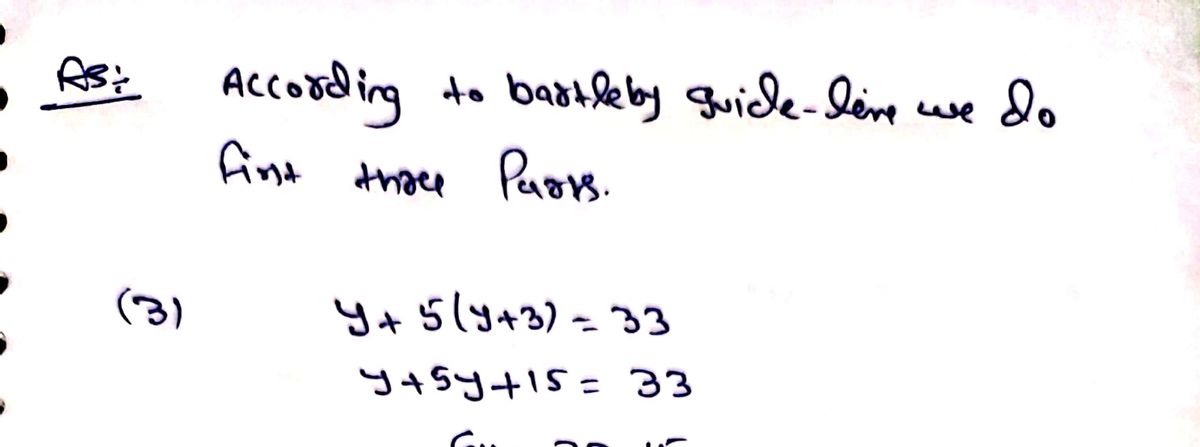 AS:
According to bartleby guide-line we do
first three Parts.
(3) y + 5(y+3) = 33
y + 5y + 15 = 33